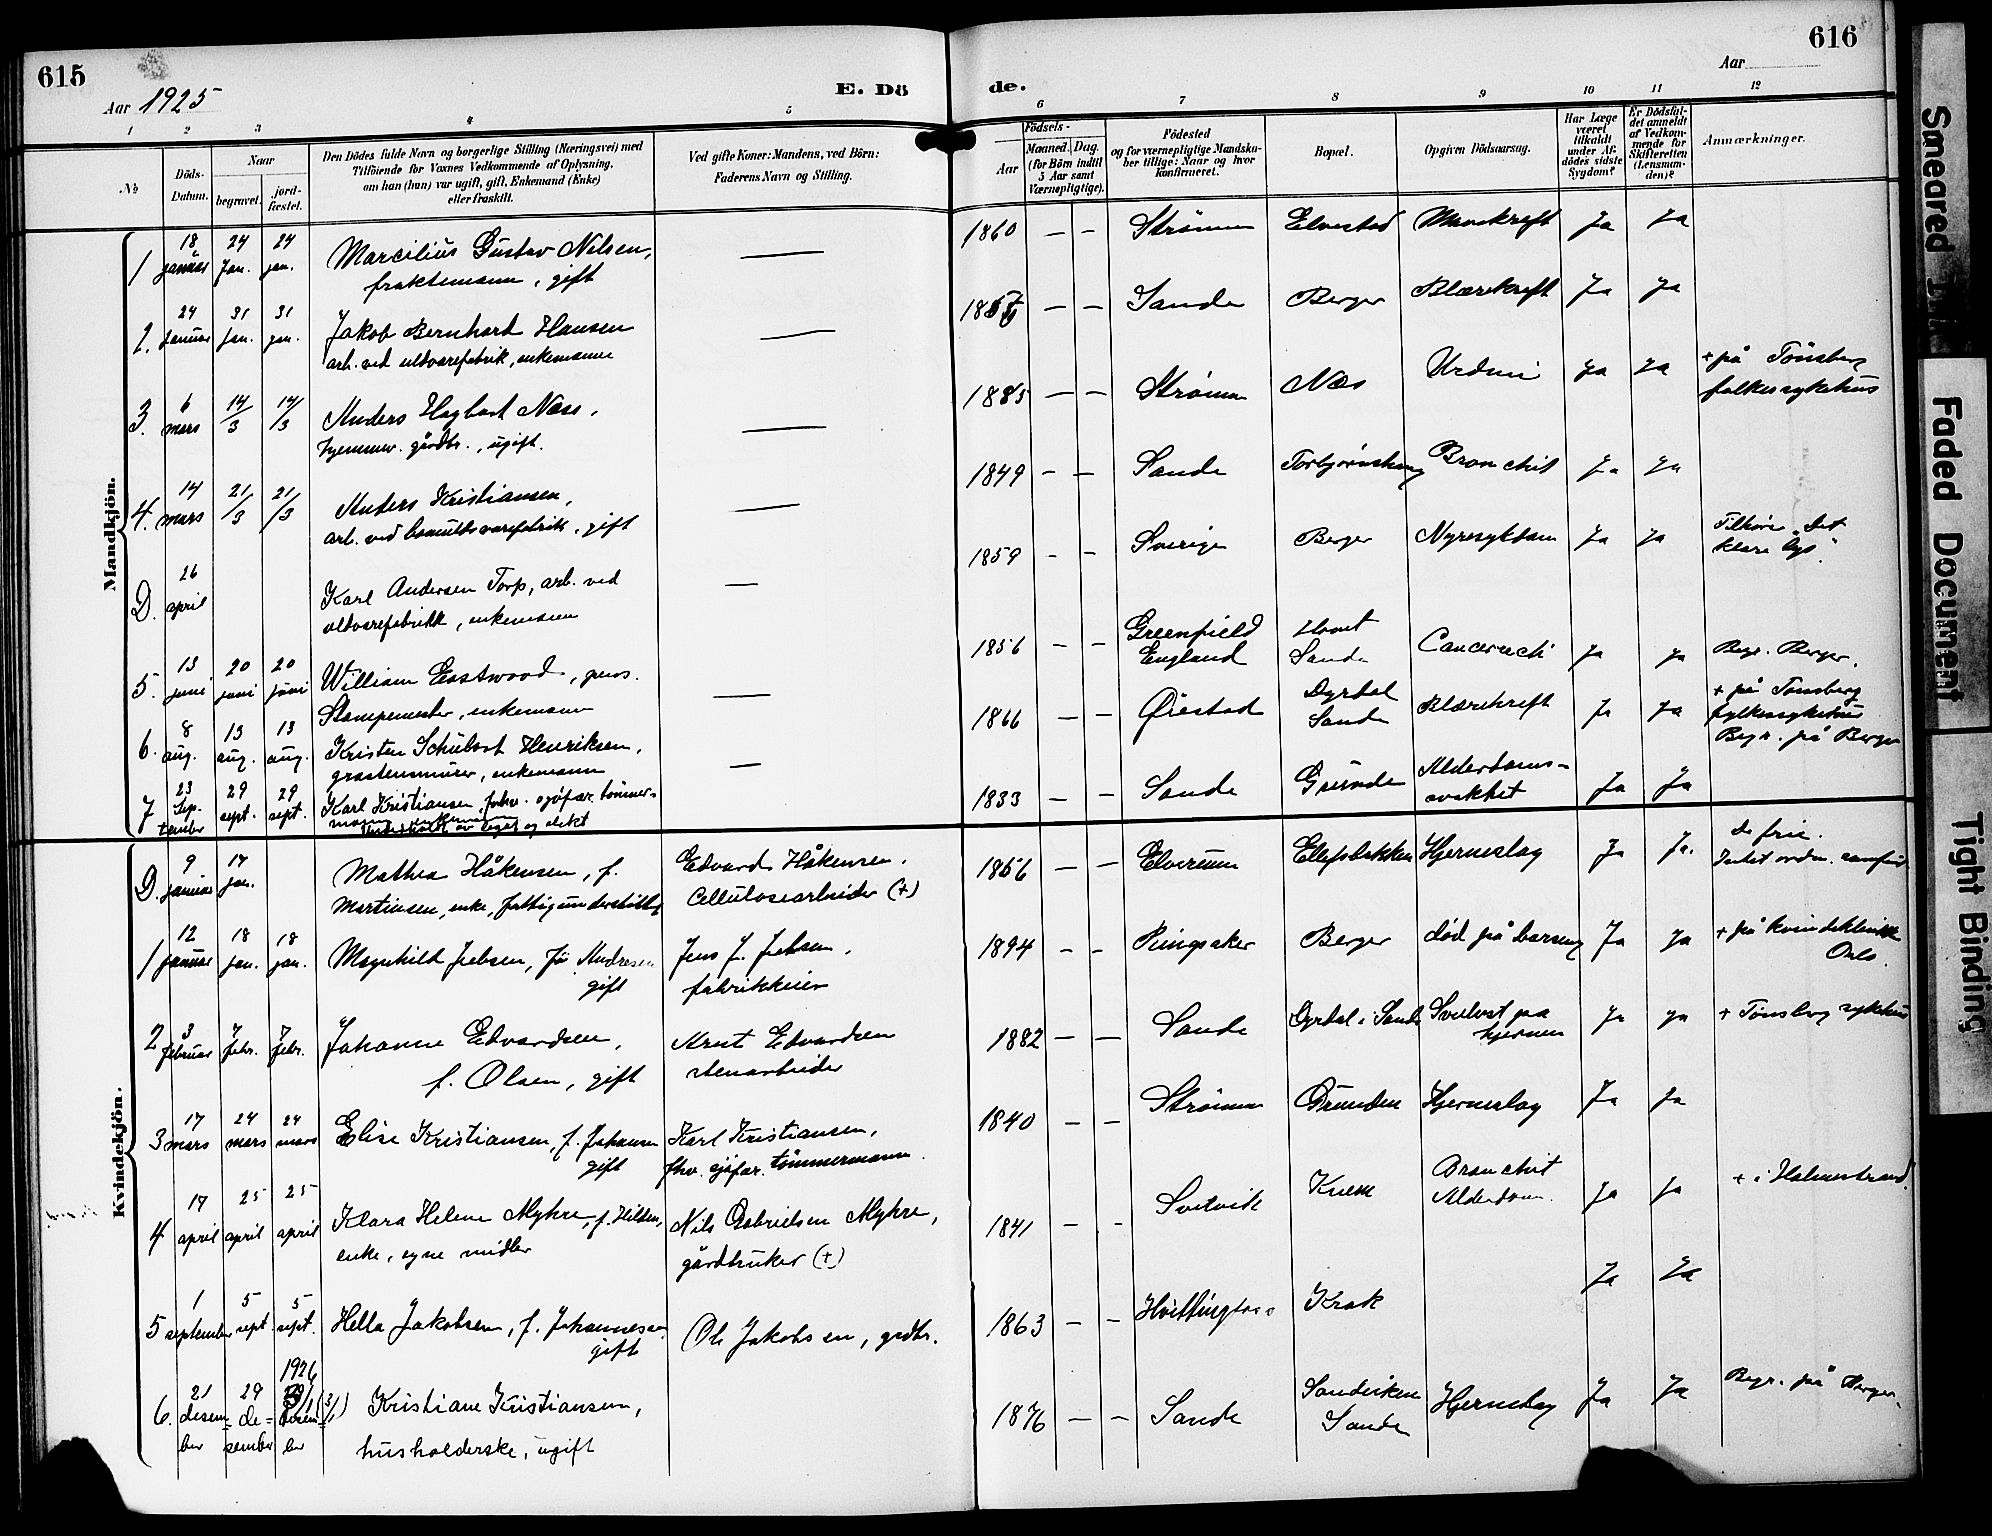 615
616
Aar 1925
E. Dö
de.
Aar
1
2
3
4
5
6
7
8
9
10
11
12
No
Döds-
Datum.
Naar
begravet.
jord-
fæstet.
Den Dödes fulde Navn og borgerlige Stilling (Næringsvei) med
Tilföiende for Voxnes Vedkommende af Oplysning,
om han (hun) var ugift, gift, Enkemand (Enke)
eller fraskilt.
Ved gifte Koner: Mandens, ved Börn:
Faderens Navn og Stilling.
Födsels-
Aar
Maaned. Dag.
(for Börn indtil
5 Aar samt
Værnepligtige).
Födested
og for værnepligtige Mandska-
ber tillige: Naar og hvor
konfirmeret.
Bopæl.
Opgiven Dödsaarsag.
Har Læge
været
tilkaldt
under Af-
dödes sidste
Sygdom?
Er Dödsfal-
det anmeldt
af Vedkom-
mende for
Skifteretten
(Lensman-
den)?
Anmærkninger.
Mandkjön.
1 18 januar 24 jan. 24 jan. Marcilius Gustav Nilsen,
fraktemann, gift — 1860 — — Strømm Elvestad Mavekreft Ja Ja
2. 24 januar 31 jan. 31 jan. Jakob Bernhard Hansen
arb. ved uldvarefabrik, enkemann — — — Sande Berger Blærekreft Ja Ja
3. 6 mars 14/3 14/3 Anders Hagbart Næss,
hjemmev. gårdbr., ugift. — 1885 — — Strømm Næs Urdmi Ja Ja + på Tønsberg
folkesykehus
4. 14 mars 21/3 21/3 Anders Kristiansen,
arb. ved bomuldsvarefabrik, gift — 1849 — — Sande Bronchit Ja Ja
D. 26 april Karl Andersen Torp, arb. ved
uldvarefabrikk, enkemann — 1859 — — Sverige Berger Nyresykdom Ja Ja Tilhører "Det
klare lys".
5. 13 juni 20 juni 20 juni William Eastwood, pens.
Stampemester, enkemann — 1856 — — Greenfield
England Sande Ja Ja Begr. Berger.
6. 8 aug. 13 aug. 13 aug. Kristen Schubart Henriksen,
gråstensmurer, enkemann — 1866 — — Ørestad Dyrdal
Sande Blærekreft Ja Ja + på Tønsberg
fylkessykehus
Begr. på Berger
7 23 september 29 sept. 29 sept. Karl Kristiansen, forhv. sjøfar. tømmer-
mann, enkemann
av leget og slekt 1833 — — Sande Grunden Alderdoms-
svakhet Ja Ja
Kvindekjön.
D. 9 januar 17 jan. Mathea Håkensen, f.
Martinsen, enke, fattigunderstøttet Edvard Håkensen,
Cellulosearbeider (+) 1856 — — Elverum Ellefsbakken Hjerneslag Ja Ja. De frie.
Intet ordn. samfund
1 12 januar 18 jan. 18 jan. Magnhild Jebsen, f. Andresen
gift Jens J. Jebsen,
fabrikkeier 1894 — — Ringsaker Berger død på barseng Ja Ja + på kvindeklinikk
Oslo.
2 3 februar 7 febr. 7 febr. Johanne Edvardsen,
f. Olsen, gift Arnt Edvardsen
stenarbeider 1882 — — Sande Dyrdal i Sande Svulst paa
hjernen Ja Ja + Tønsberg sykehus
3 17 mars 24 mars 24 mars Elise Kristiansen, f. Johansen
gift Karl Kristiansen,
fhv. sjøfar. tömmermann. 1840 — — Strømm Grunden Hjerneslag Ja Ja
4 17 april 25 april 25 april Klara Helene Myhre, f. Hilden,
enke, egne midler Nils Gabrielsen Myhre,
gårdbruker (+) 1841 — - Svelvik Knem Bronchit
Alderdom. Ja Ja + i Holmestrand.
5 1 september 5 sept. 5 sept. Hella Jakobsen, f. Johannesen
gift Ole Jakobsen, grdbr. 1863 — — Hvittingfoss Krok Ja Ja
6. 21 desember 29 desember 1926 3/1 (3/1) Kristiane Kristiansen,
husholderske, ugift 1876 — — Sande Sandviken
Sande Hjerneslag Ja Ja Begr. på Berger.
Smeared
Faded Document
Tight Binding